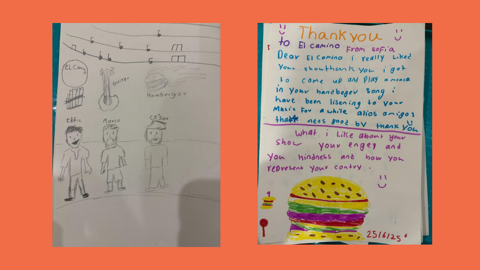 El Camino
guitar
Hamburger
Eddie Marco
Thank you
to El camino from sofia
Dear El camino I really liked
your show thank you i got
to come up and play a maraca
in your hamborger song i
have been listening to your
Music for a while alios amigos
that nens good by thank you
What i like about your
show your engey and
you kindness and how you
represent your contry.
25/6/25